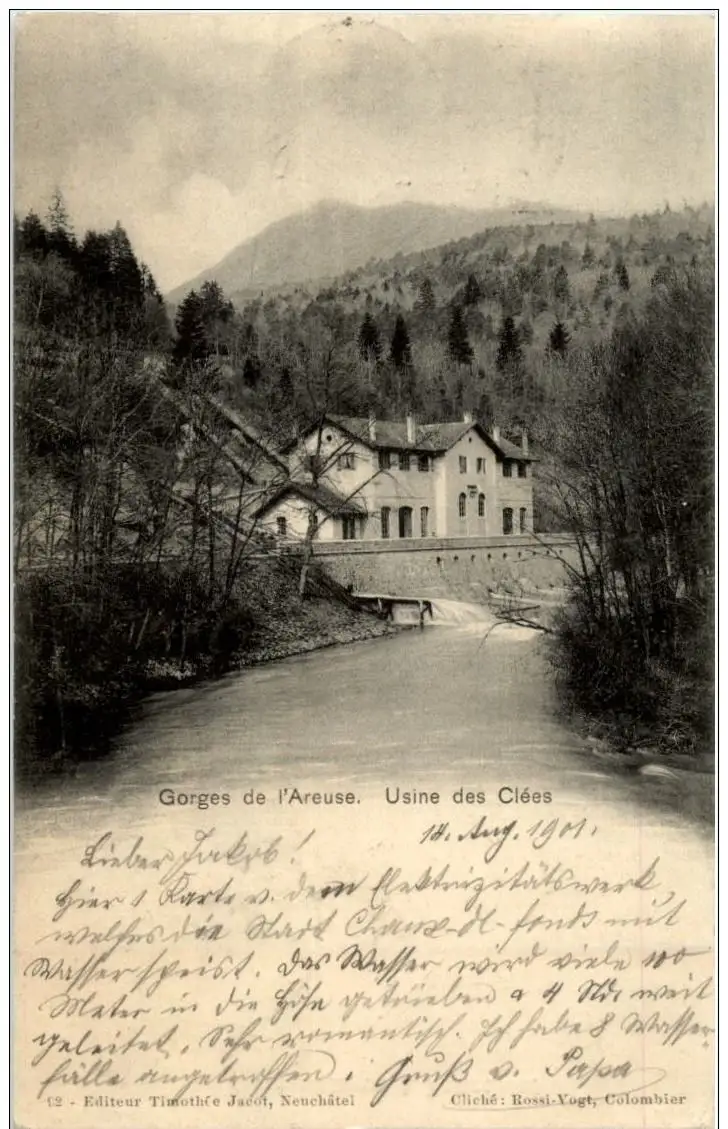 Gorges de l'Areuse. Usine des Clées
14. Aug. 1901.
Lieber Jakob!
Hier 1 Karte v. dem Elektrizitätswerk,
welches die Stadt Chaux-de-fonds mit
Wasser speist. Das Wasser wird viele 100
Meter in die Höhe getrieben & 4 Std. weit
geleitet. Sehr romantisch. Ich habe 8 Wasser-
fälle angetroffen. Gruß v. Papa
92 - Editeur Timothée Jacot, Neuchâtel
Cliché: Rossi-Vogt, Colombier